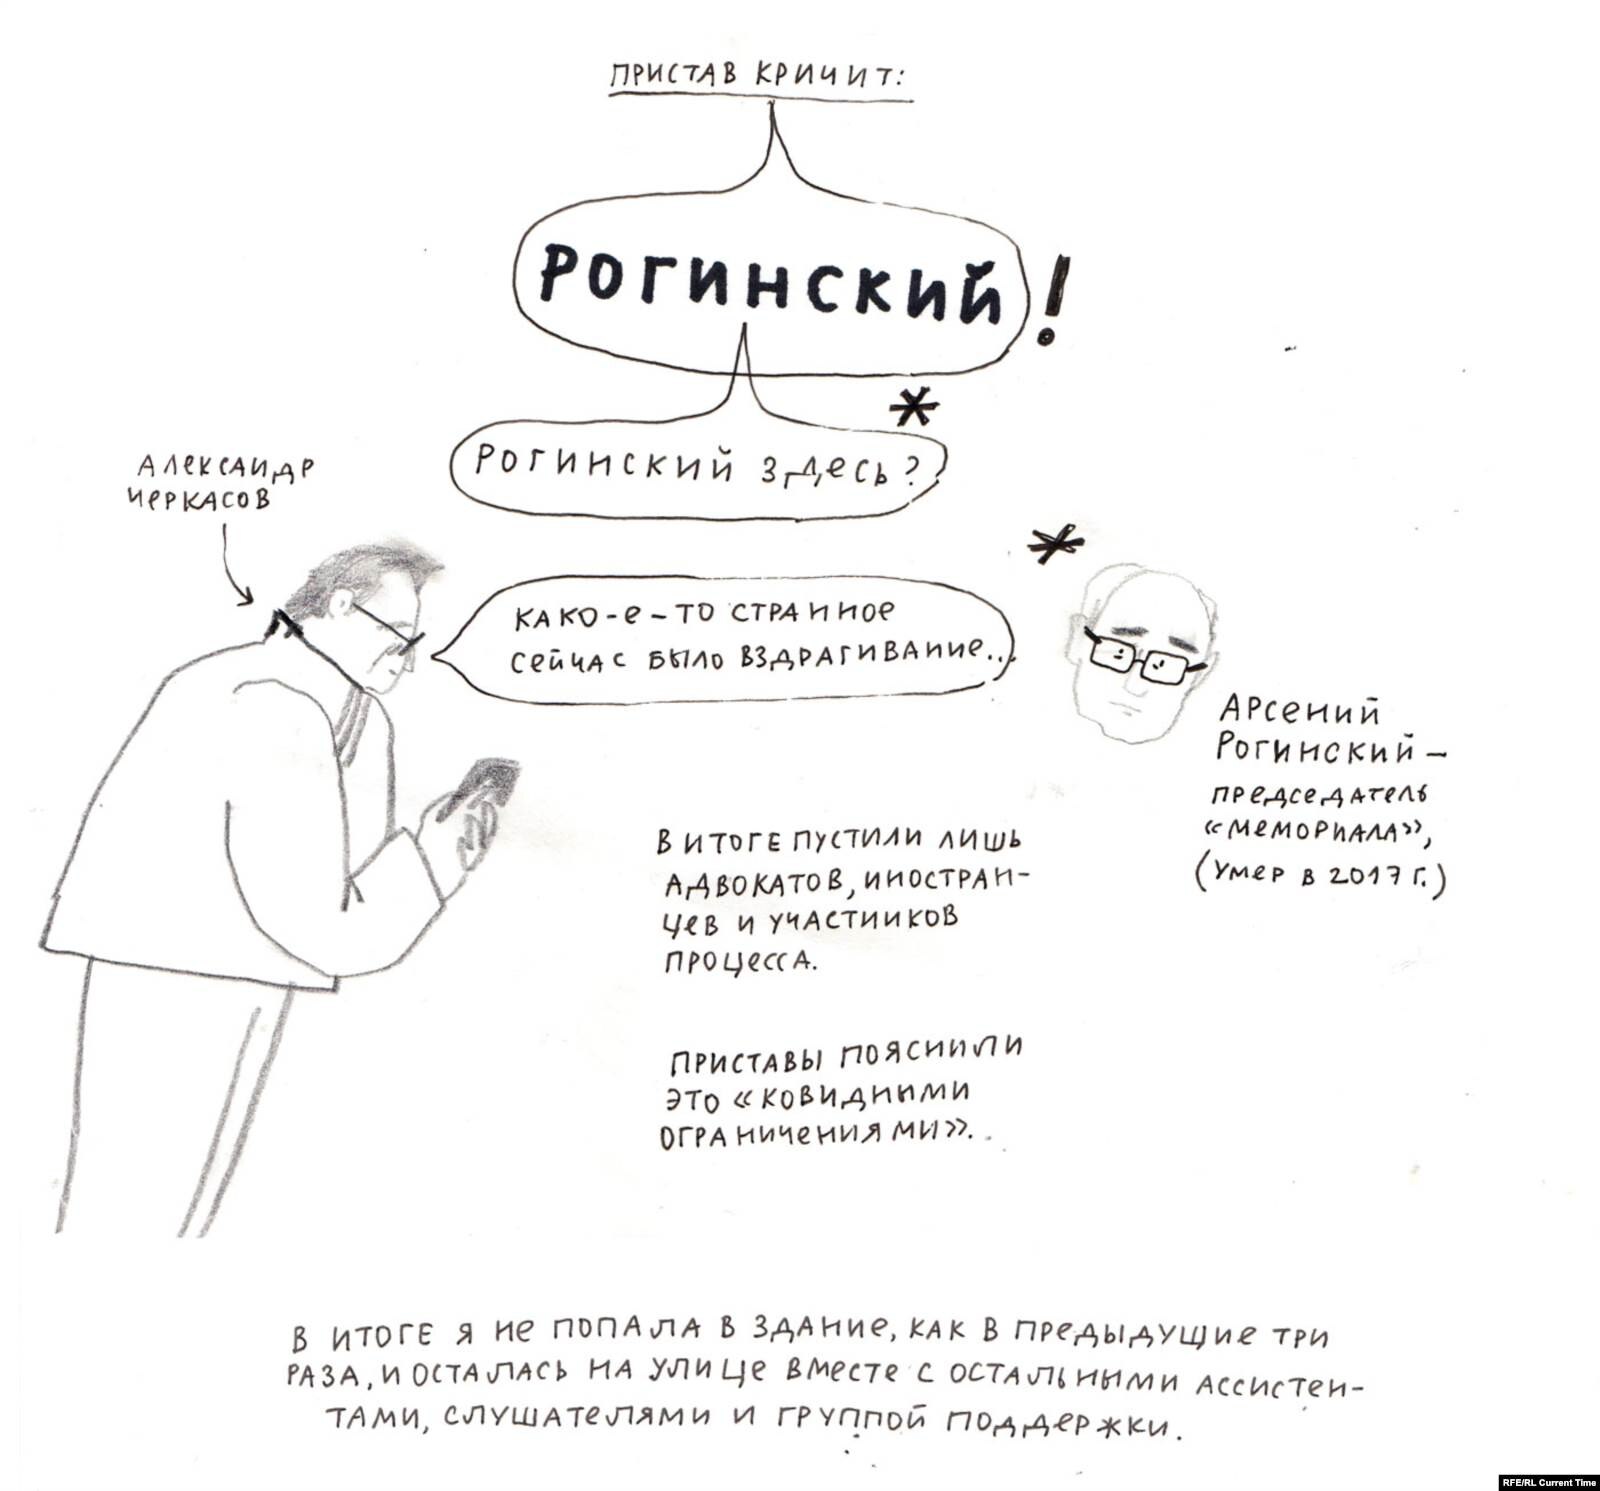 ПРИСТАВ КРИЧИТ:
РОГИНСКИЙ!
*
РОГИНСКИЙ ЗДЕСЬ?
АЛЕКСАНДР
ЧЕРКАСОВ
*
КАКО-Е-ТО СТРАННОЕ
СЕЙЧАС БЫЛО ВЗДРАГИВАНИЕ...
АРСЕНИЙ
РОГИНСКИЙ –
ПРЕДСЕДАТЕЛЬ
«МЕМОРИАЛА»,
(УМЕР В 2017 Г.)
В ИТОГЕ ПУСТИЛИ ЛИШЬ
АДВОКАТОВ, ИНОСТРАН-
ЦЕВ И УЧАСТНИКОВ
ПРОЦЕССА.
ПРИСТАВЫ ПОЯСНИЛИ
ЭТО «КОВИДНЫМИ
ОГРАНИЧЕНИЯМИ».
В ИТОГЕ Я НЕ ПОПАЛА В ЗДАНИЕ, КАК В ПРЕДЫДУЩИЕ ТРИ
РАЗА, И ОСТАЛАСЬ НА УЛИЦЕ ВМЕСТЕ С ОСТАЛЬНЫМИ АССИСТЕН-
ТАМИ, СЛУШАТЕЛЯМИ И ГРУППОЙ ПОДДЕРЖКИ.
RFE/RL Current Time